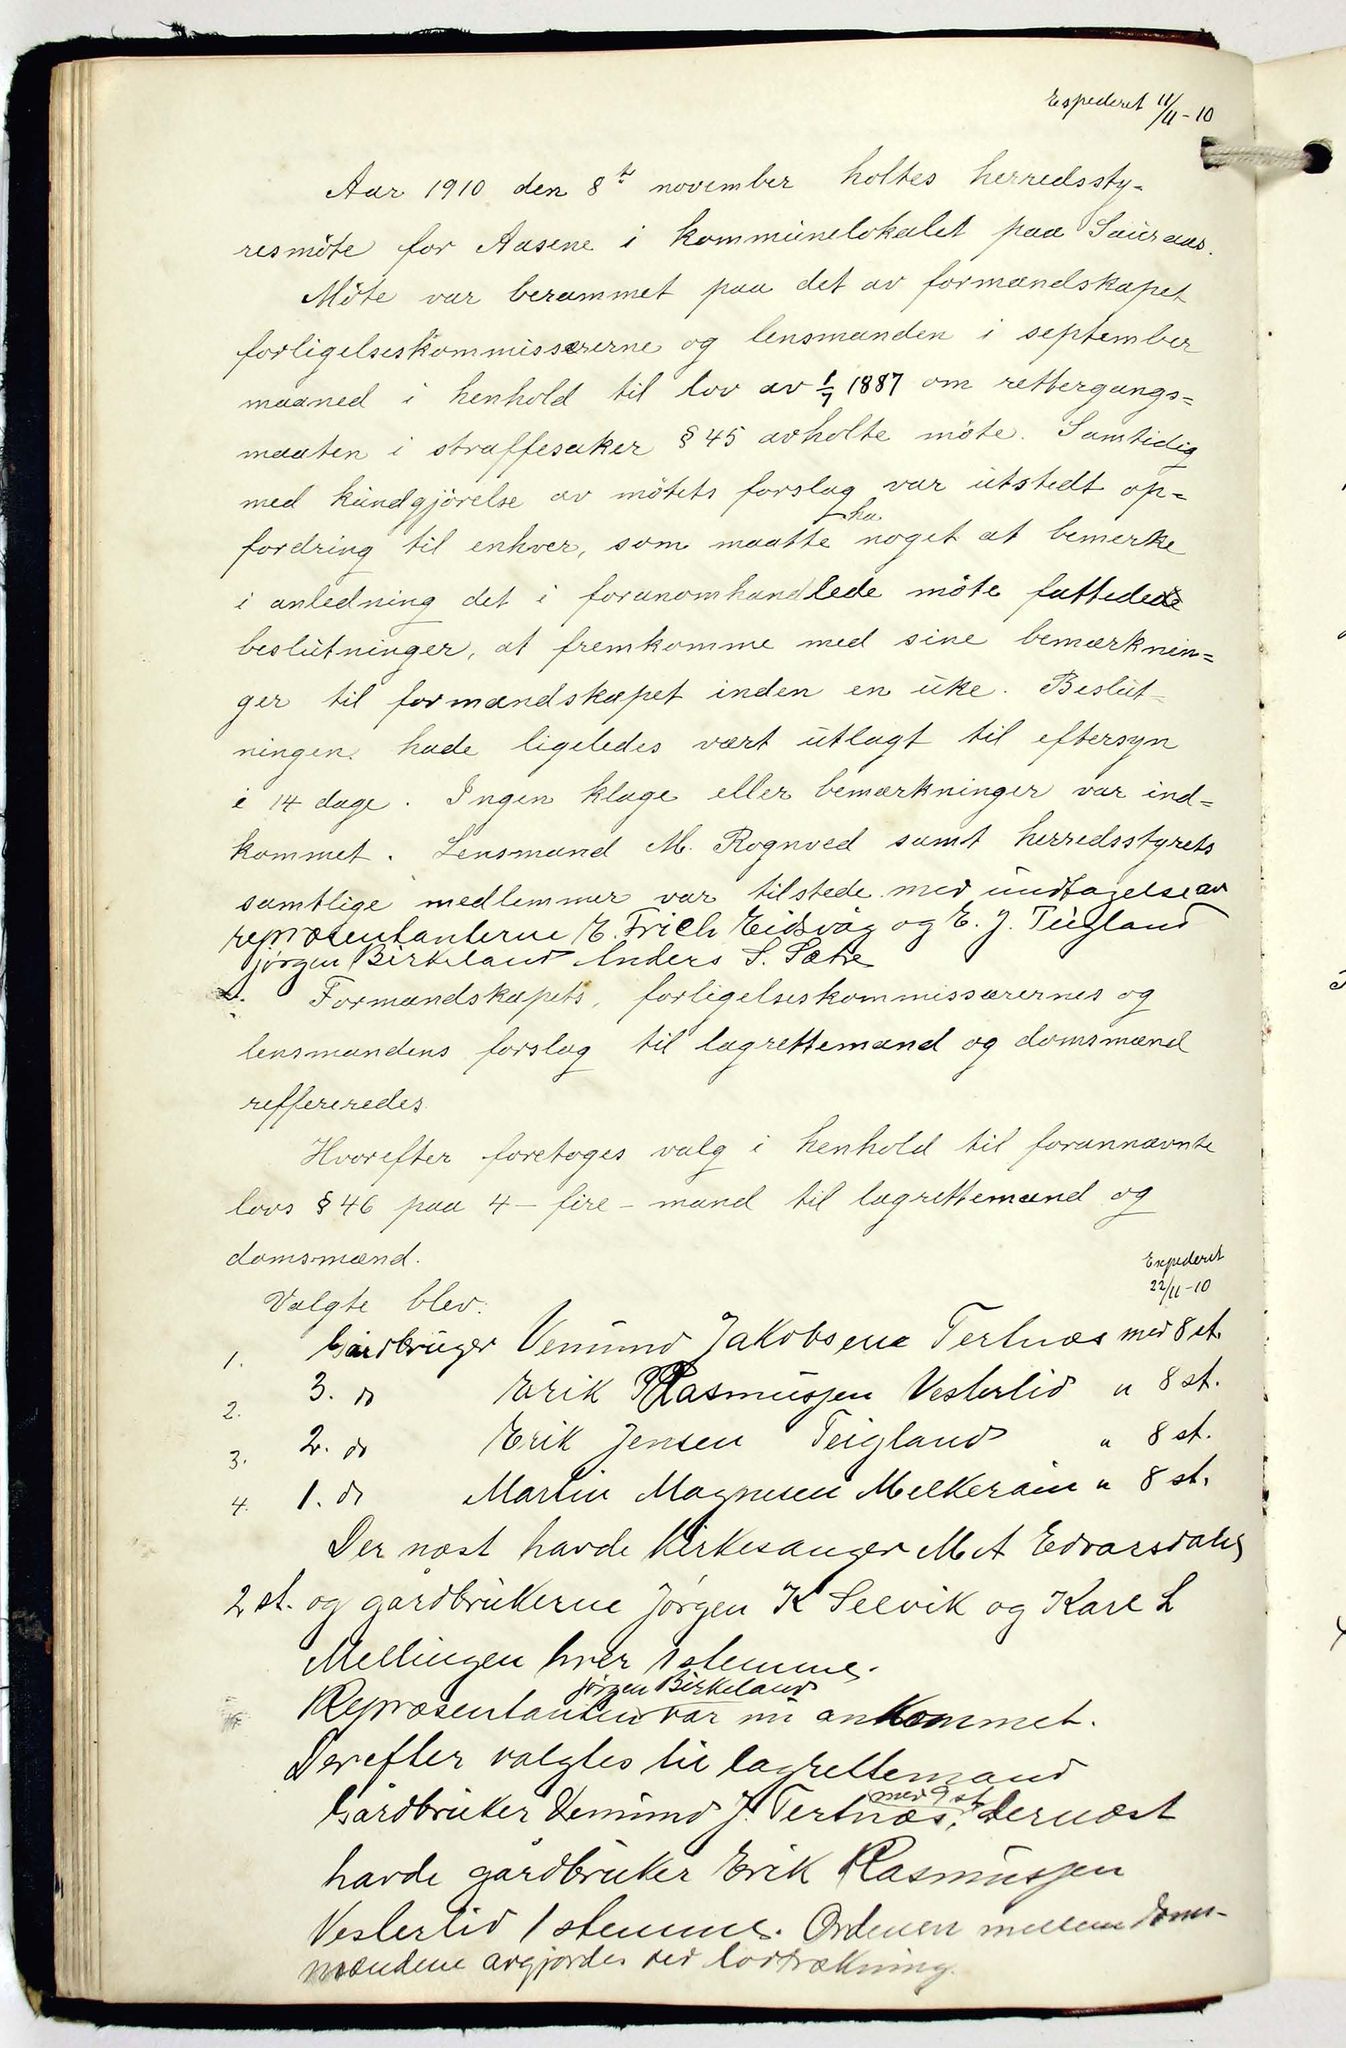 Expederet 11/11-10
Aar 1910 den 8de november holtes herredssty-
resmöte for Aasene i kommunelokalet paa Sauraas.
Möte var berammet paa det av formandskapet
forligelseskommissærerne og lensmanden i september
maaned i henhold til lov av 1/7 1887 om rettergangs=
maaten i straffesaker § 45 avholte möte. Samtidig
med kundgjörelse av mötets forslag var utstedt op=
fordring til enhver, som maatte ha noget at bemerke
i anledning det i foranomhandlede möte fattedede
beslutninger, at fremkomme med sine bemærknin=
ger til formandskapet inden en uke. Beslut-
ningen hade ligeledes vært utlagt til eftersyn
i 14 dage. Ingen klage eller bemærkninger var ind=
kommet. Lensmand M. Rognved samt herredsstyrets
samtlige medlemmer var tilstede med undtagelse av
repræsentanterne E. Frich Eidsvåg og E. J. Teigland
Jørgen Birkeland Anders S. Sætre
Formandskapets, forligelseskommissærernes og
lensmandens forslag til lagrettemænd og domsmænd
reffereredes.
Hvorefter foretoges valg i henhold til forannævnte
lovs § 46 paa 4 - fire - mand til lagrettemænd og
domsmænd.
Expederet
22/11-10
Valgte blev:
1. Gårdbruger Vemund Jakobsene Tertnæs med 8 st.
2. 3. do Erik Rasmussen Vesterlid " 8 st.
3. 2. do Erik Jensen Teigland " 8 st.
4. 1. do Martin Magnesen Melkeråen " 8 st.
Der næst havde Kirkesanger M A Edvarsdahl
2 st. og gårdbrukerne Jørgen K Selvik og Karl L
Mellingen hver 1 stemme.
Repræsentanten Jørgen Birkeland var nu ankommet.
Derefter valgtes til lagrettemand
Gårdbruker Vemund J. Tertnæs, med 9 st. Dernæst
havde gårdbruker Erik Rasmussen
Vesterlid 1 stemme. Ordenen mellem doms-
mændene avgjordes ved lodtrækning.